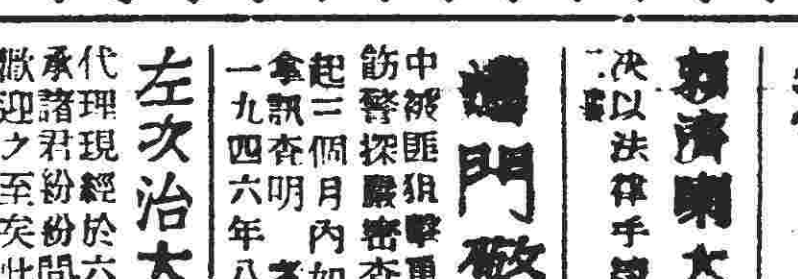 郭濟喇大
决以法律手
門警
中被匪狙擊
飭警探嚴密查
起三個月內如
拿訊查明
一九四六年八
左次治大
代理現經於六
承諸君紛紛問
歡迎之至矣此